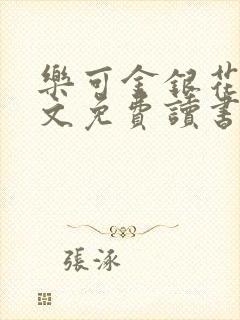 樂可金銀花
文免費讀書
張泳